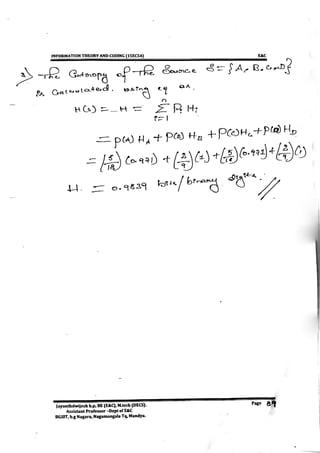 INFORMATION THEORY AND CODING (15EC54) E&C
3) The Entropy of The Source S = {A, B, C and D}
is Calculated. using eq as,
H(s) = H = Σ Pi Hi
n
i=1
= P(A) HA + P(B) HB + P(C) HC + P(D) HD
= (5/18) (0.971) + (2/9) (1) + (5/18) (0.971) + (2/9) (1)
H = 0.9839 bits / binary digits.
Jayanthdwijesh h.p, BE (E&C), M.tech (DECS).
Assistant Professor –Dept of E&C
BGSIT, b.g Nagara, Nagamangala Tq, Mandya.
Page 39